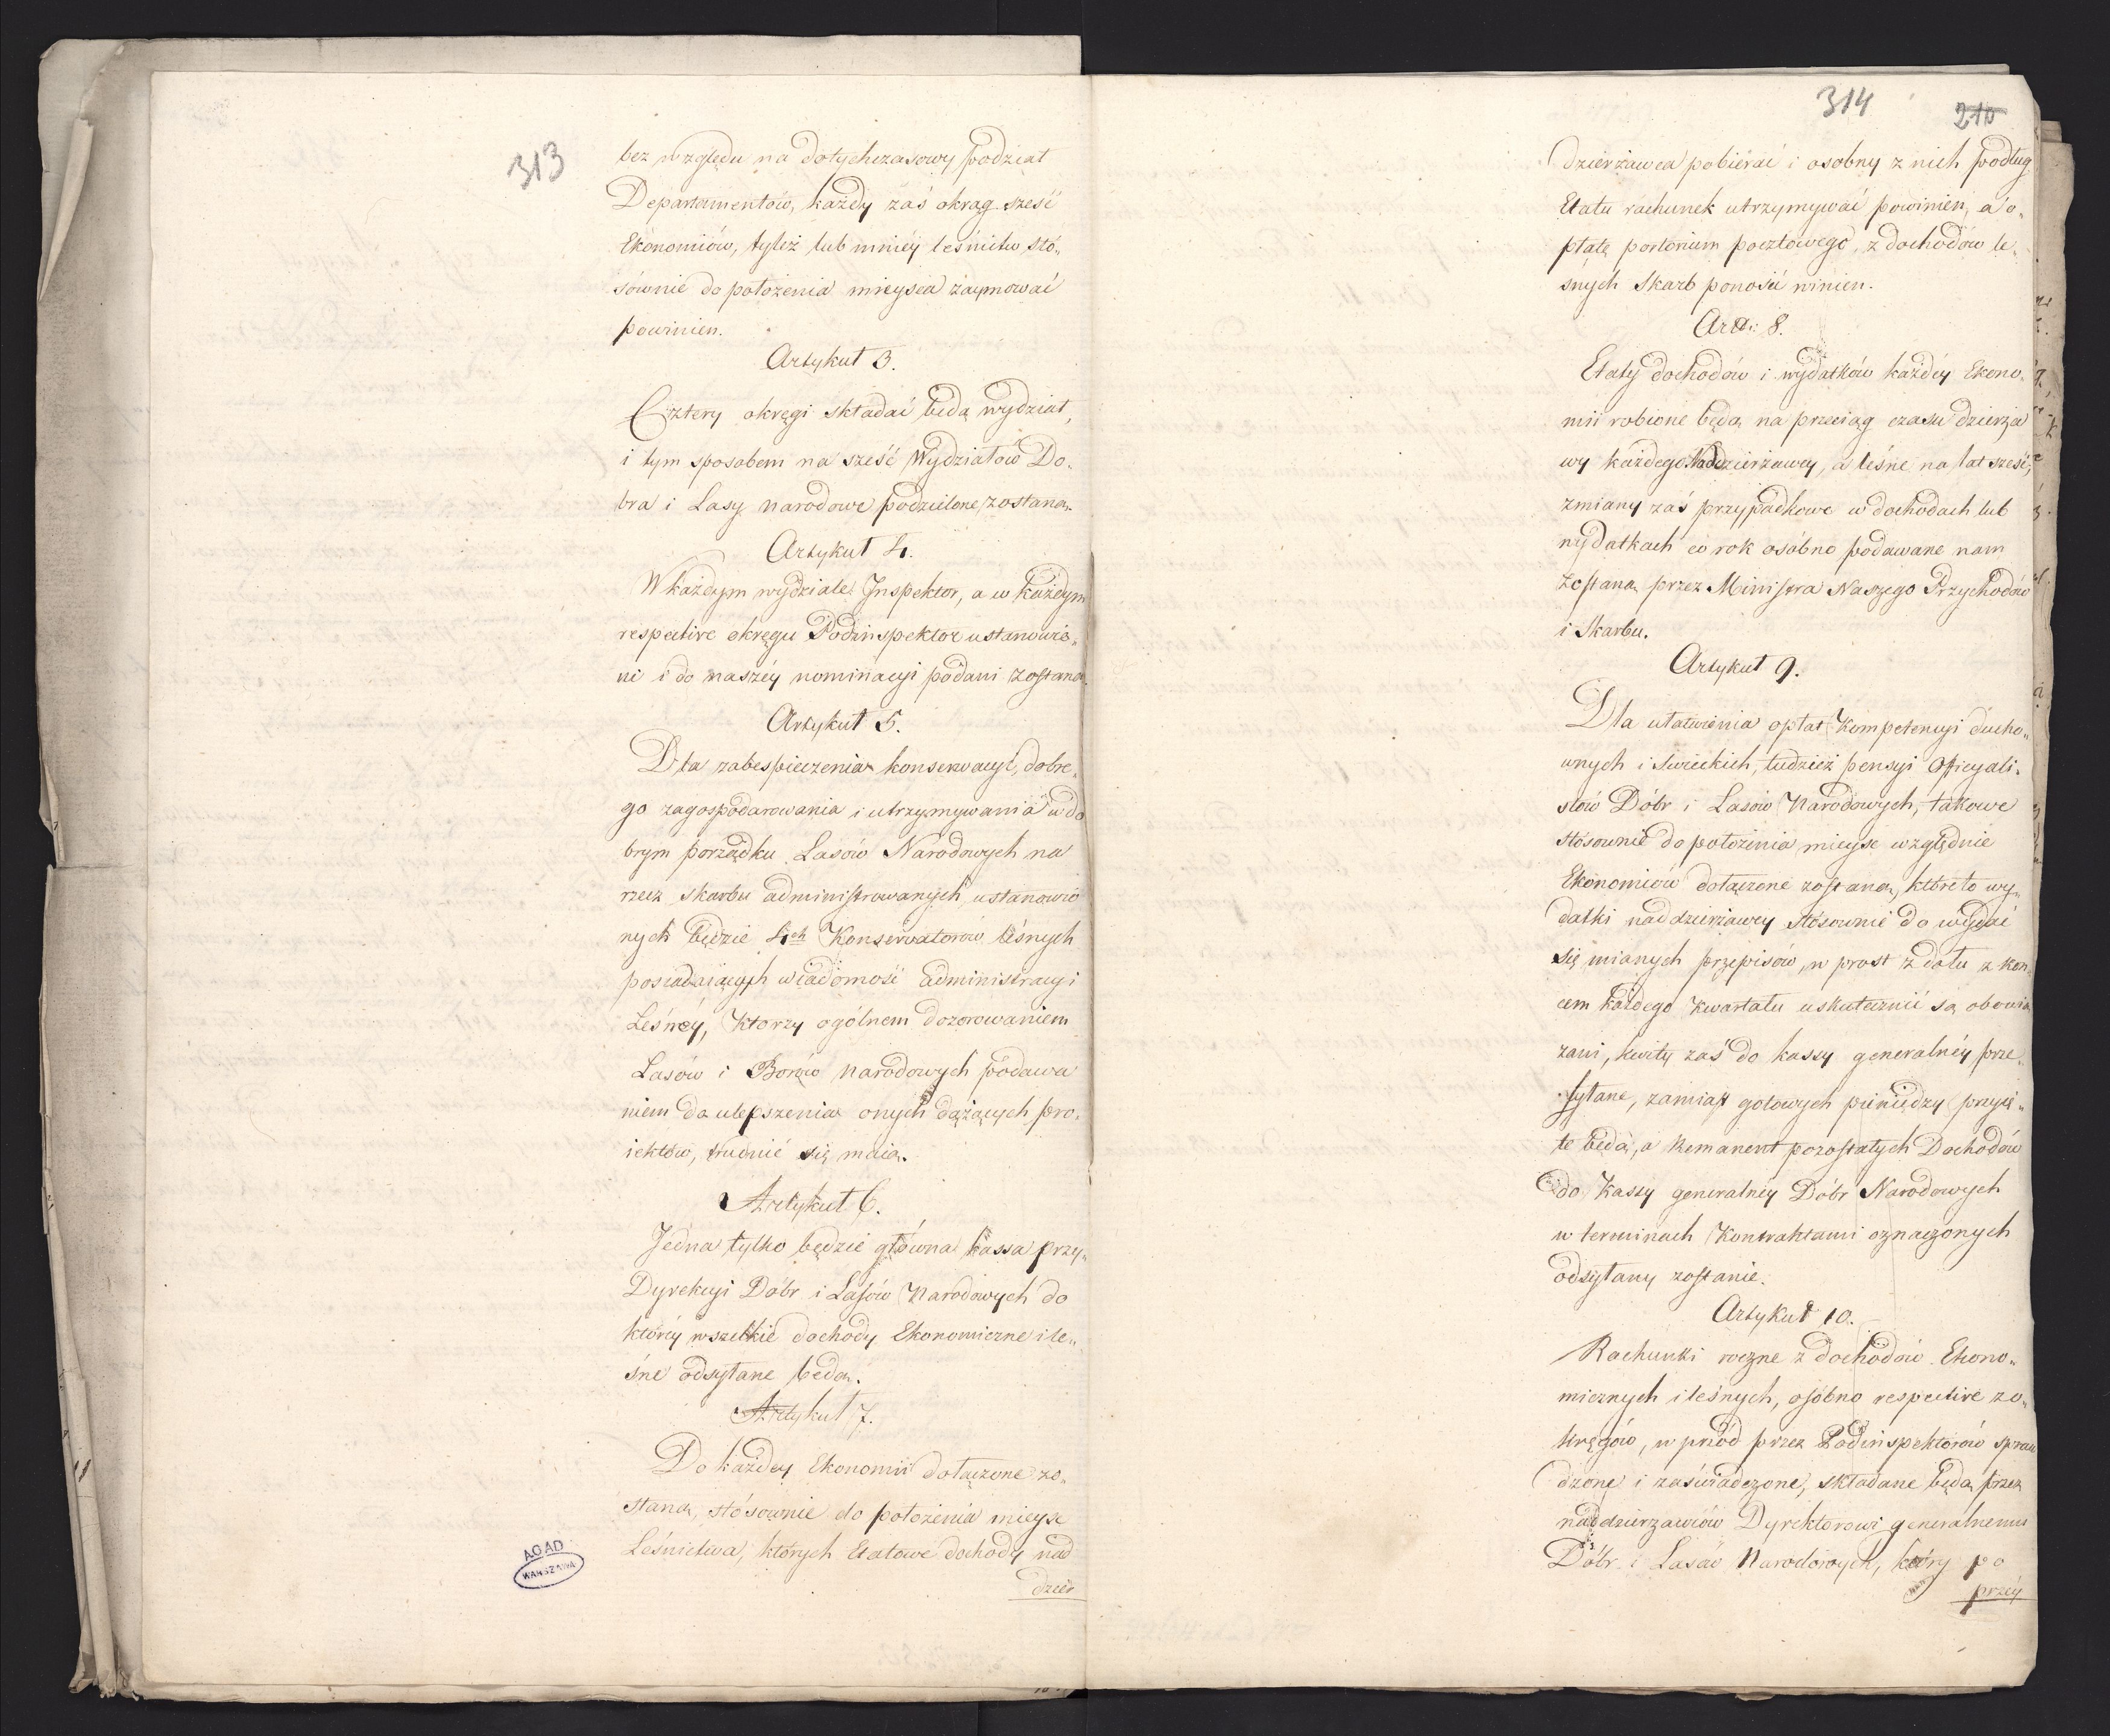 313
bez względu na dotychczasowy podział
Departamentów, każdy zaś okrąg sześć
Ekonomiów, tyleż lub mniéy leśnictw stó„
sównie do położenia mieysca zaymować
powinien.
Artykuł 3.
Cztery okręgi składać będą wydział,
i tym sposobem na sześć Wydziałów Do„
bra i Lasy Narodowe podzielone zostaną.
Artykuł 4.
W każdym wydziale Inspektor, a w każdym
respective okręgu Podinspektor ustanowie„
ni i do naszéy nominacyi podani zostaną.
Artykuł 5.
Dla zabespieczenia konserwacyi, dobre„
go zagospodarowania i utrzymywania w do
brym porządku Lasów Narodowych na
rzecz skarbu administrowanych ustanowio
nych będzie 4ch Konserwatorów leśnych
posiadaiących wiadomość administracyi
Leśnéy, którzy ogólnem dozorowaniem
Lasów i Borów Narodowych podawa
niem do ulepszenia onych dążących pro„
iektów, trudnić się maią.
Artykuł 6.
Jedna tylko będzie główna kassa przy„
Dyrekcyi Dóbr i Lasów Narodowych do
któréy wszelkie dochody Ekonomiczne i le„
śne odsyłane będą.
Artykuł 7.
Do każdey Ekonomii dołączone zo„
staną, stósownie do położenia mieysc
Leśnictwa, których Etatowe dochody nad
dzier
AGAD
WARSZAWA
314
210
dzierżawca pobierać i osobny z nich podług
Etatu rachunek utrzymywać powinien, a o„
płatę portorium pocztowego, z dochodów le„
śnych Skarb ponosić winien.
Art: 8.
Etaty dochodów i wydatków każdéy Ekono„
mii robione będą na przeciąg czasu dzierża
wy każdego Naddzierżawcy, a leśne na lat sześć,
zmiany zaś przypadkowe w dochodach lub
wydatkach co rok osóbno podawane nam
zostaną przez Ministra Naszego Przychodów
i Skarbu.
Artykuł 9.
Dla ułatwienia opłat Kompetencyi ducho„
wnych i świeckich, tudzież pensyi Officyali„
stów Dóbr i Lasów Narodowych, takowe
stósownie do położenia mieysc względnie
Ekonomiów dołączone zostaną, któreto wy„
datki naddzierżawcy stósownie do wydać
się mianych przepisów, w prost z dołu z koń„
cem każdego Kwartału uskutecznić są obowią
zani, kwity zaś do kassy generalnéy prze„
syłane, zamiast gotowych pieniędzy przyię„
te będą, a Remanent pozostałych Dochodów
do Kassy generalnéy Dóbr Narodowych
w terminach Kontraktami oznaczonych
odsyłany zostanie.
Artykuł 10.
Rachunki roczne z dochodów Ekono„
micznych i leśnych, osóbno respective z o„
kręgów, w przód przez Podinspektorów spraw
dzone i zaświadczone, składane będą przez
naddzierzawców Dyrektorowi generalnemu
Dóbr i Lasów Narodowych, który po
przéy